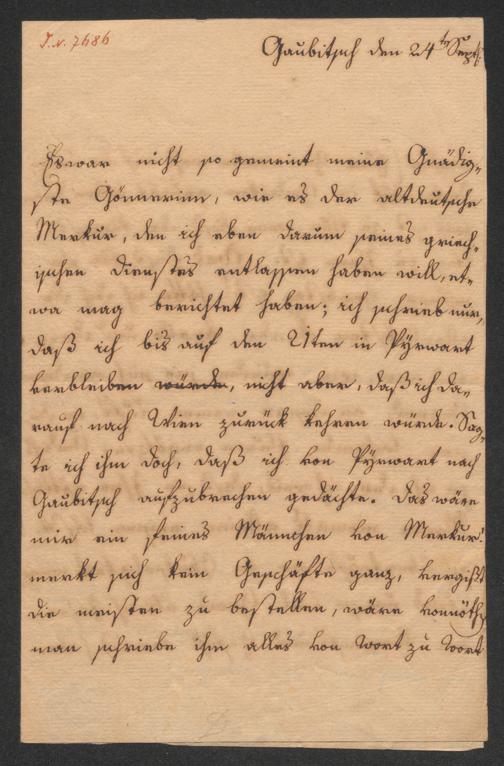 I.N. 7686
Gaubitsch den 24ten Sept.
Es war nicht so gemeint meine Gnädig-
ste Gönnerinn, wie es der altdeutsche
Merkur, den ich eben darum seines griech-
ischen Dienstes entlassen haben will, et-
wa mag berichtet haben; ich schrieb nur,
daß ich bis auf den 21ten in Pyrwart
verbleiben würde, nicht aber, daß ich da-
rauf nach Wien zurück kehren würde. Sag-
te ich ihm doch, daß ich von Pyrwart nach
Gaubitsch aufzubrechen gedächte. Das wäre
mir ein feines Männchen von Merkur!
merkt sich kein Geschäfte ganz, vergißt
die meisten zu bestellen, wäre vonnöthen
man schriebe ihm alles von Wort zu Wort